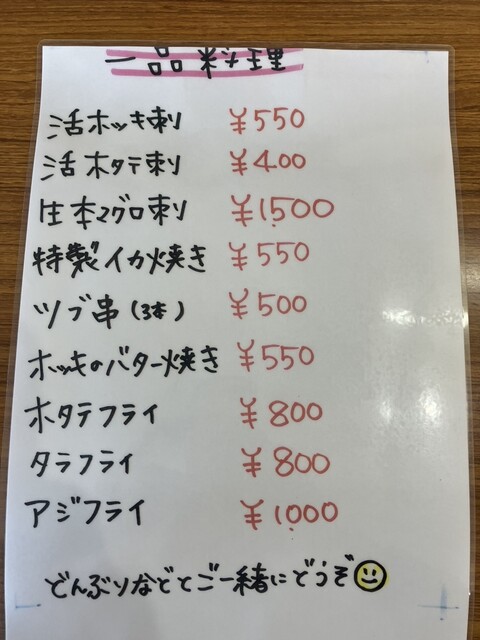 一品料理
活ホッキ刺 ¥550
活ホタテ刺 ¥400
生本マグロ刺 ¥1,500
特製イカ焼き ¥550
ツブ串(3本) ¥500
ホッキのバター焼き ¥550
ホタテフライ ¥800
タラフライ ¥800
アジフライ ¥1,000
どんぶりなどとご一緒にどうぞ